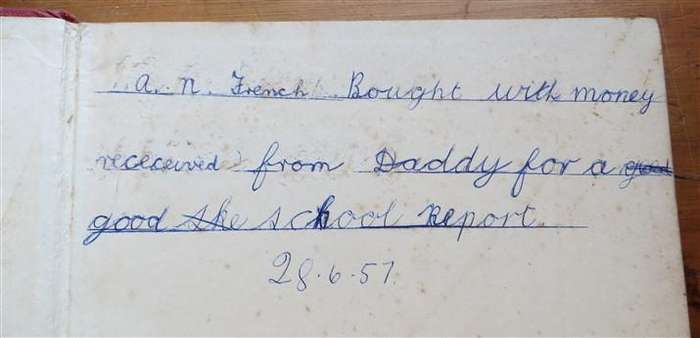 A. N. French. Bought with money
rececieved from Daddy for a good
good ske school Report.
28.6.57.